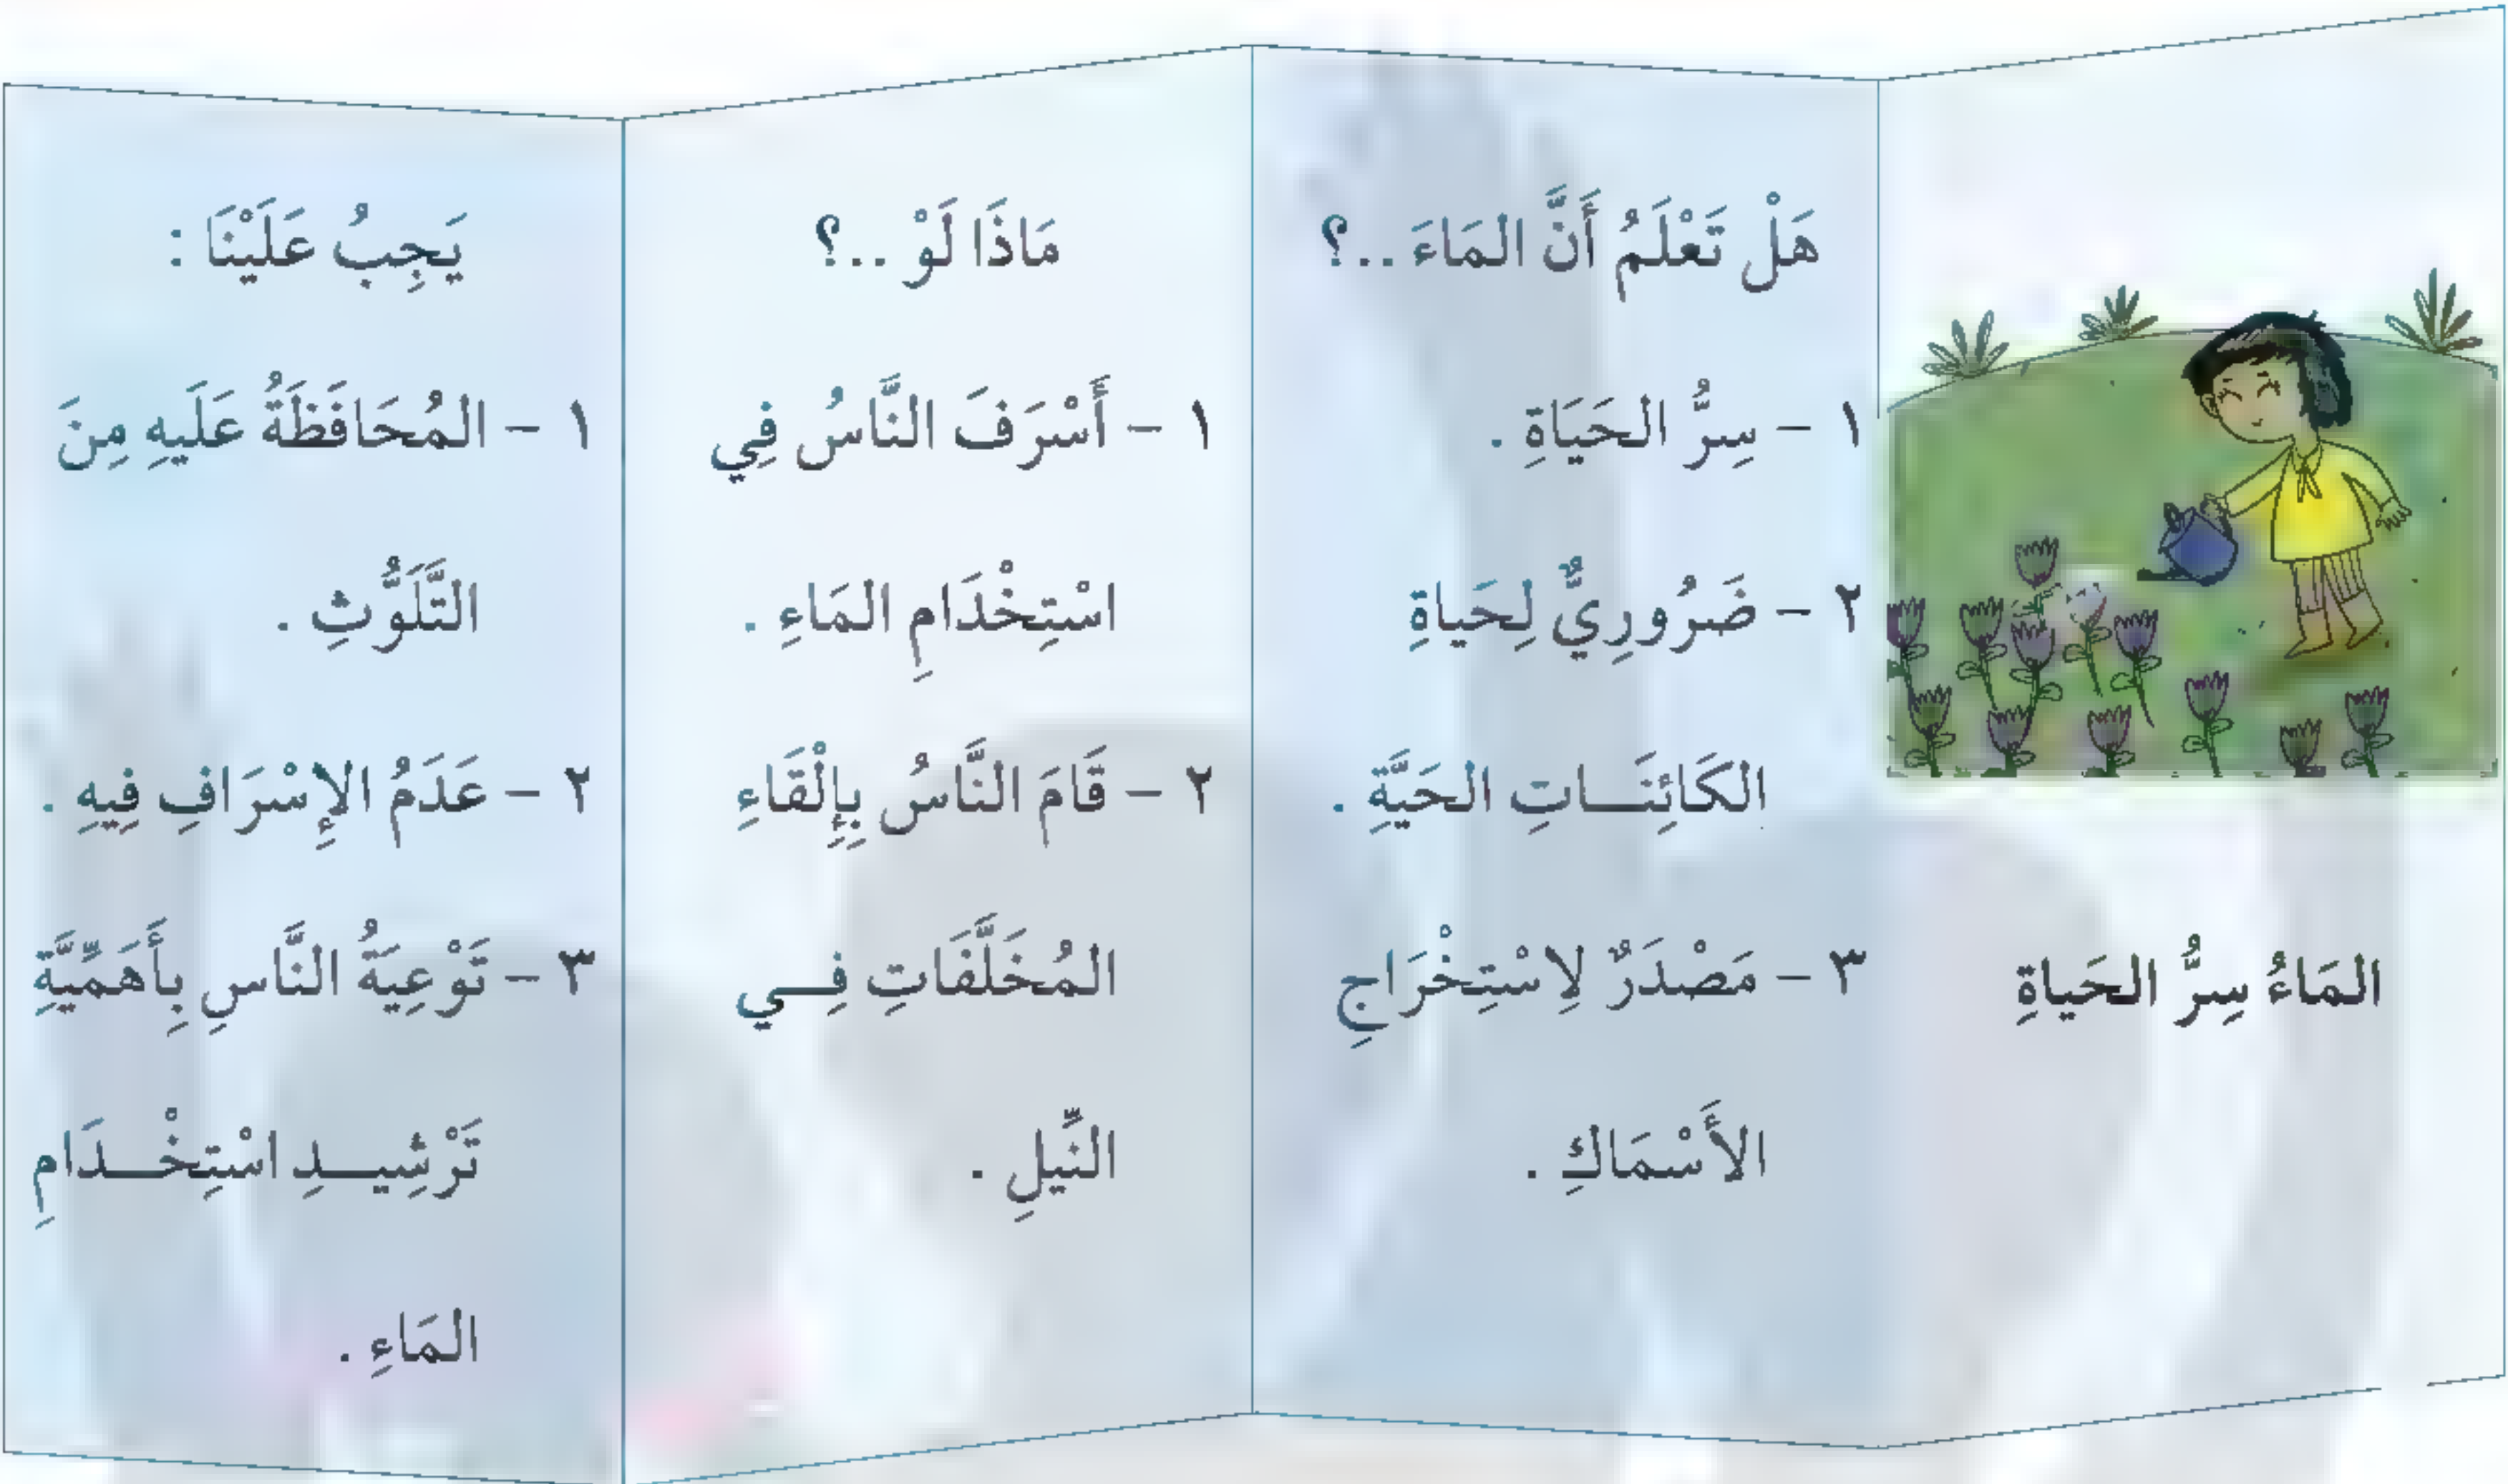 المَاءُ سِرُّ الحَياةِ
هَلْ تَعْلَمُ أَنَّ المَاءَ ..؟
١ – سِرُّ الحَيَاةِ .
٢ – ضَرُورِيٌّ لِحَياةِ
الكَائِنَـــاتِ الحَيَّةِ .
٣ – مَصْدَرٌ لِاسْتِخْرَاجِ
الأَسْمَاكِ .
مَاذَا لَوْ ..؟
١ – أَسْرَفَ النَّاسُ فِي
اسْتِخْدَامِ المَاءِ .
٢ – قَامَ النَّاسُ بِإِلْقَاءِ
المُخَلَّفَاتِ فِـــي
النِّيلِ .
يَجِبُ عَلَيْنَا :
١ – المُحَافَظَةُ عَلَيهِ مِنَ
التَّلَوُّثِ .
٢ – عَدَمُ الإِسْرَافِ فِيهِ .
٣ – تَوْعِيَةُ النَّاسِ بِأَهَمِّيَّةِ
تَرْشِيـــدِ اسْتِخْـــدَامِ
المَاءِ .